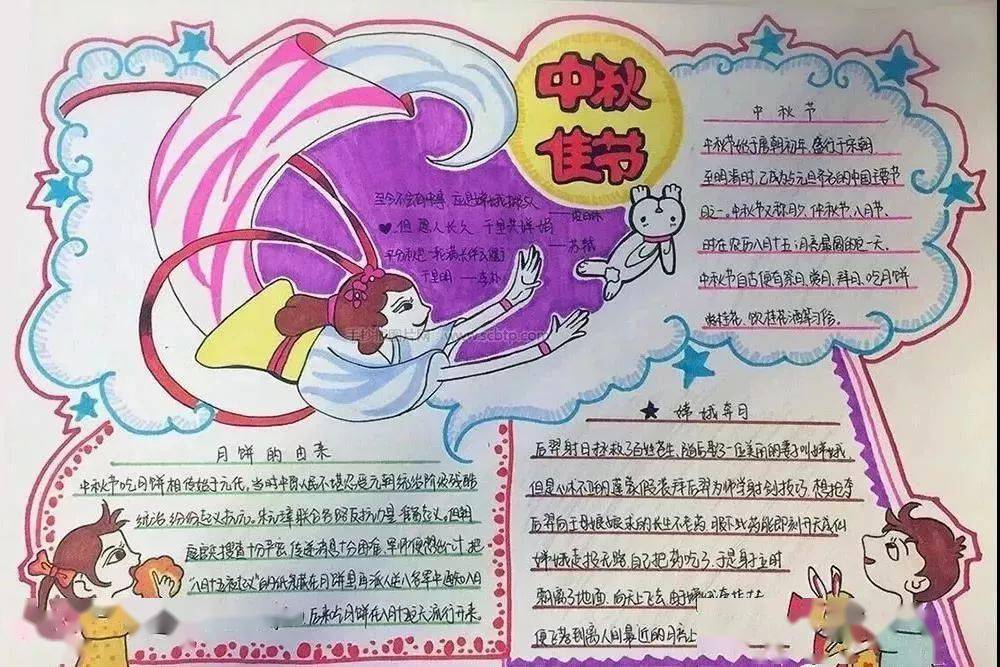 中秋
佳节
中秋节
中秋节始于唐朝初年,盛行于宋朝
至明清时,已成为与元旦齐名的中国主要节
日之一。中秋节又称月夕、仲秋节、八月节。
时在农历八月十五,月亮最圆的一天。
中秋节自古便有祭月、赏月、拜月、吃月饼
赏桂花、饮桂花酒等习俗。
但愿人长久 千里共婵娟
——苏轼
平分秋色一轮满长伴云衢
千里明 ——李朴
手抄报图片网 www.scbtp.com
月饼的由来
中秋节吃月饼相传始于元代,当时中原人民不堪忍受元朝统治阶级残酷
统治 纷纷起义抗元。朱元璋联合各路反抗力量准备起义。但朝
庭官兵搜查十分严密,传递消息十分困难 军师便想出一计,把
“八月十五夜起义”的纸条藏在月饼里再派人送
后来吃月饼在八月十五便大流行开来。
嫦娥奔月
后羿射日拯救了百姓苍生,随后娶了一位美丽的妻子叫嫦娥
但是心术不正的蓬蒙假装拜后羿为师学射剑技巧 想抢夺
后羿向王母娘娘求的长生不老药 服下此药能即刻升天成仙
嫦娥走投无路 自己把药吃了 于是身立时
飘离了地面 向天上飞去
便飞落到离人间最近的月亮上